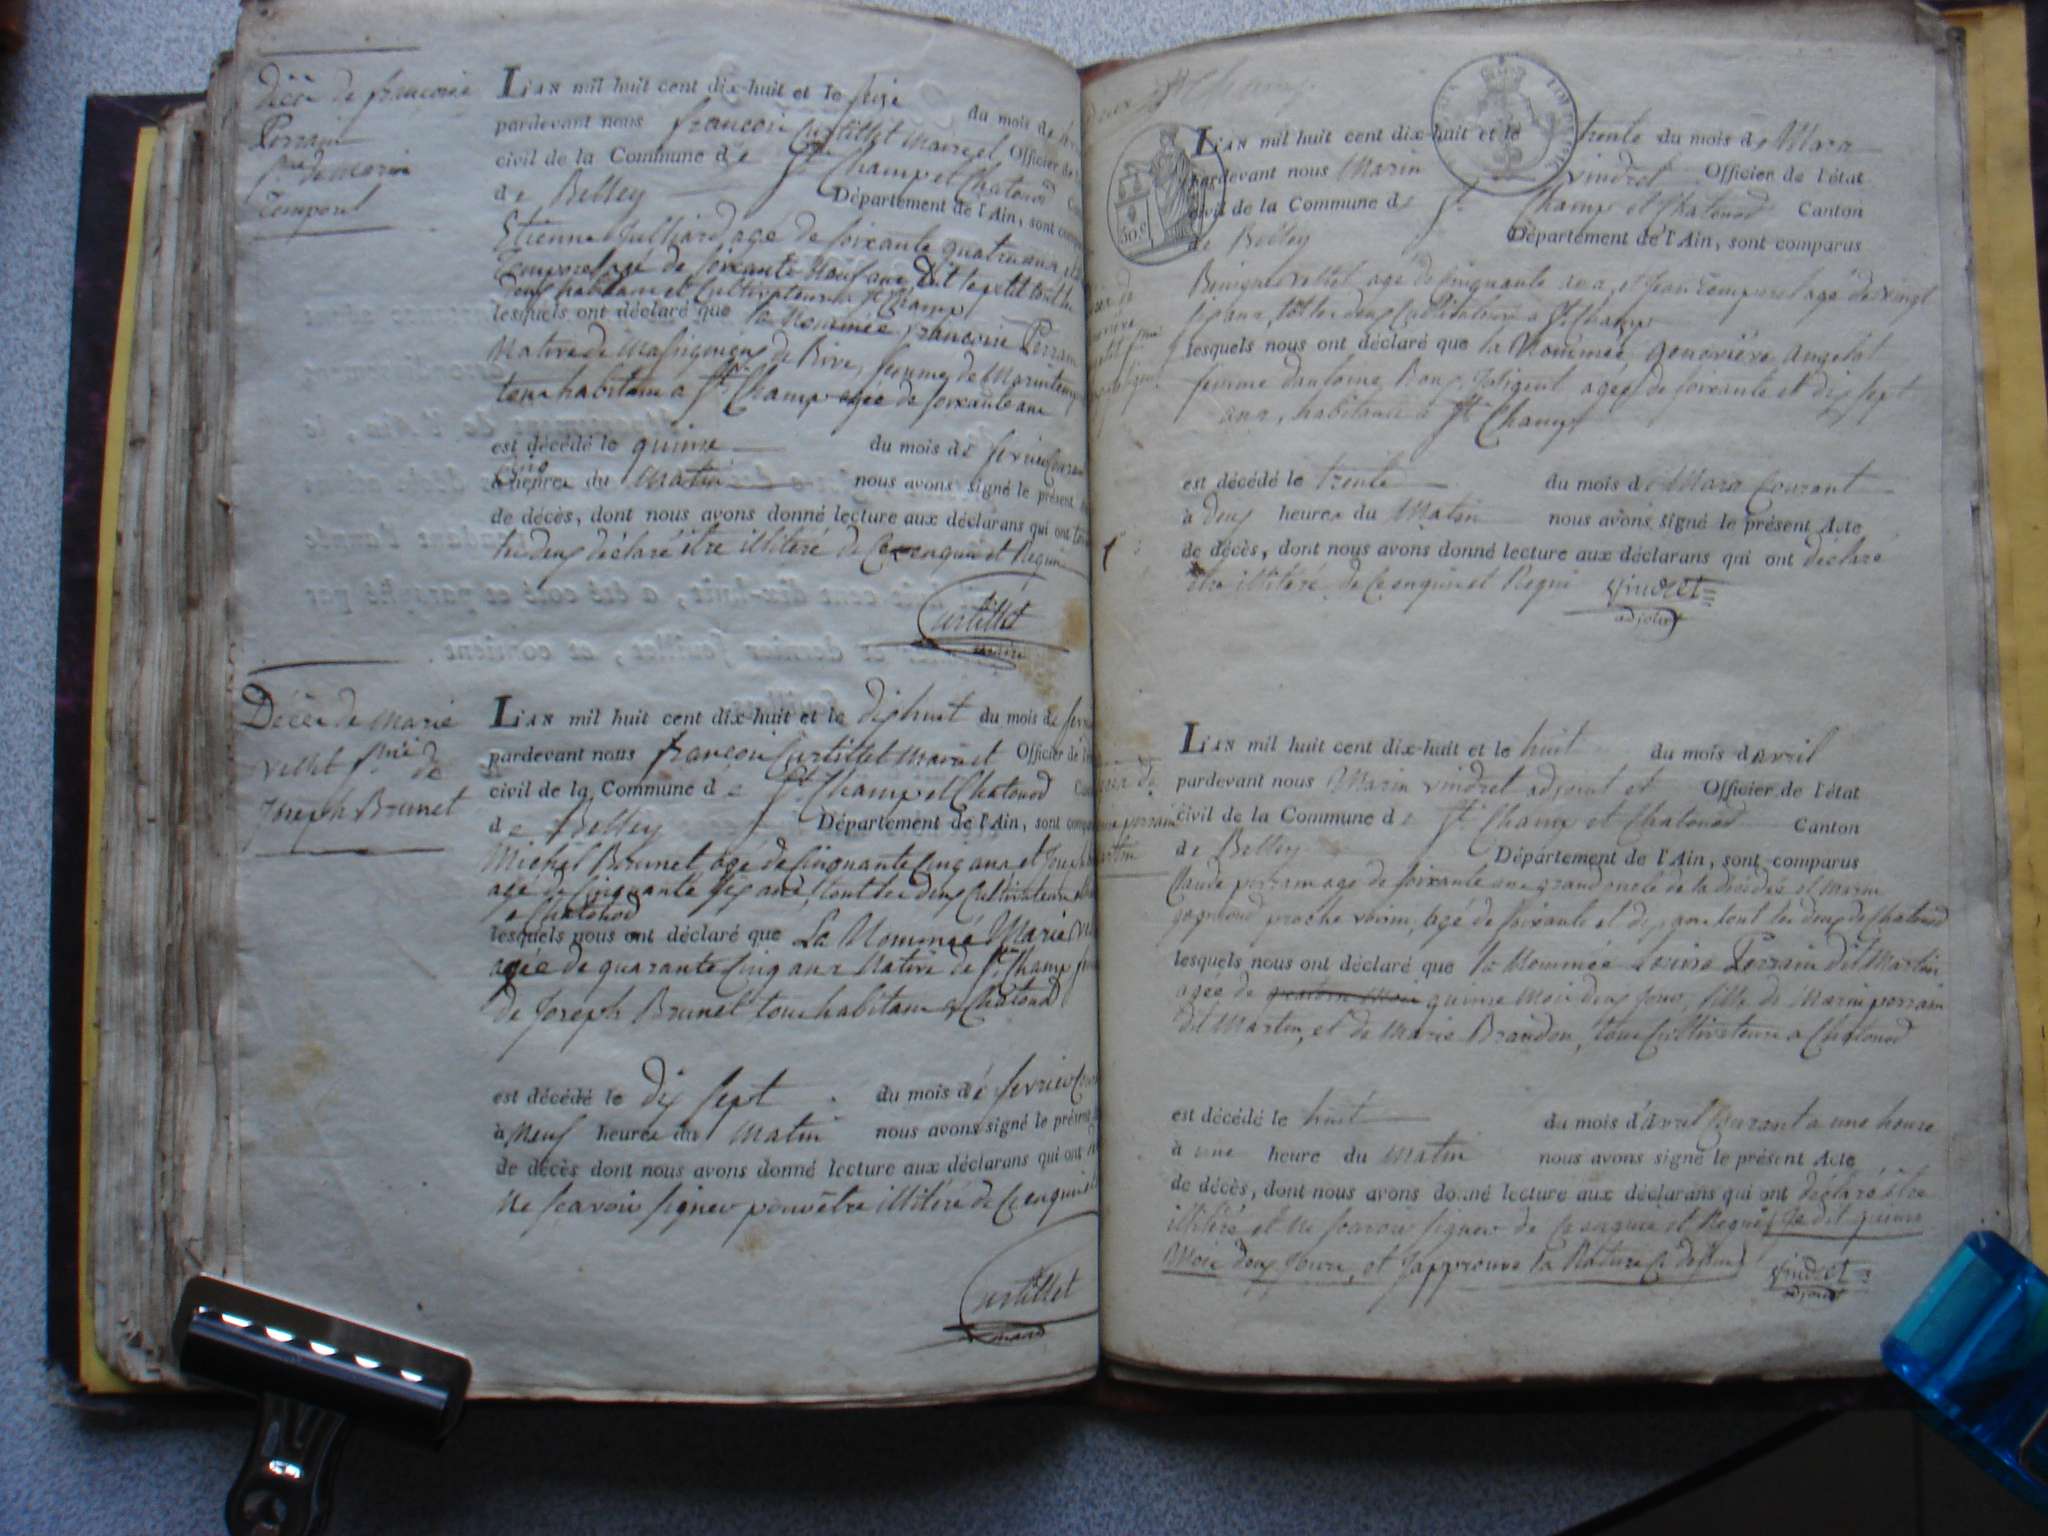 Décès de françoise
Perrain
fme de marin
Temporal
L'AN mil huit cent dix-huit et le seize du mois de
pardevant nous françois Curtillet Maire et Officier de
civil de la Commune de St Champ et Chatonod
de Belley Département de l'Ain, sont comparus
Etienne Julliard agé de soixante quatre ans
Temporal agé de soixante Neuf ans Dit le petit tout les
deux habitans et Cultivateurs a St Champ
lesquels ont déclaré que la Nommée françoise Perrain
Native de Massignieu de Rive, femme de Marin temporal
tous habitans a St Champ agée de soixante ans
est décédé le quinze du mois de fevrier Courant
a cinq heures du Matin nous avons signé le présent
de décès, dont nous avons donné lecture aux déclarans qui ont tous
les deux déclaré être illitéré de Ce enquis et Requis
Curtillet
maire
Décès de Marie
Vellet fme de
Joseph Brunet
L'AN mil huit cent dix-huit et le dixhuit du mois de
pardevant nous françois Curtillet Maire et Officier de
civil de la Commune de St Champ et Chatonod
de Belley Département de l'Ain, sont comparus
Michel Brunet agé de Cinquante Cinq ans et Joseph
agé de Cinquante six ans, tout les deux Cultivateurs
a Chatonod
lesquels nous ont déclaré que La Nommée Marie
agée de quarante Cinq ans Native de St Champ
de Joseph Brunet tous habitans a Chatonod
est décédé le dix sept du mois de fevrier
à Neuf heures du Matin nous avons signé le présent
de décès dont nous avons donné lecture aux déclarans qui ont
Ne scavoir signer pour être illitéré de Ce enquis
Curtillet
maire
30.c
L'AN mil huit cent dix-huit et le trente du mois de Mars
pardevant nous Marin vindret Officier de l'état
civil de la Commune de St Champ et Chatonod Canton
de Belley Département de l'Ain, sont comparus
Benigne vellet agé de Cinquante ans, et Jean temporal agé de vingt
six ans, tout les deux Cultivateurs a St Champ
lesquels nous ont déclaré que la Nommée, Genevieve Angelot
femme dantoine Bon, Indigent agée de soixante et dix sept
ans, habitans a St Champ
est décédé le trente du mois de Mars Courant
à deux heures du Matin nous avons signé le présent Acte
de décès, dont nous avons donné lecture aux déclarans qui ont déclaré
être illitéré de Ce enquis et Requis Vindret
adjoint
L'AN mil huit cent dix-huit et le huit du mois d avril
pardevant nous Marin vindret adjoint et Officier de l'état
civil de la Commune de St Champ et Chatonod Canton
de Belley Département de l'Ain, sont comparus
Claude perrain agé de soixante ans grand oncle de la décédée et Marin
proche voisin, agé de soixante et dix ans tout les deux de Chatonod
lesquels nous ont déclaré que la Nommée Louise Perrain dit Martin
agée de quinze Mois deux Jours, fille de Marin perrain
dit Martin, et de Marie Brandon, tous Cultivateurs a Chatonod
est décédé le huit du mois d'avril Courant a une heure
à une heure du Matin nous avons signé le présent Acte
de décès, dont nous avons donné lecture aux déclarans qui ont déclaré être
illitéré et Ne scavoir signer de Ce enquis et Requis Je dit quinze
Mois deux Jours, et J'approuve la Rature Ci dessus Vindret
adjoint